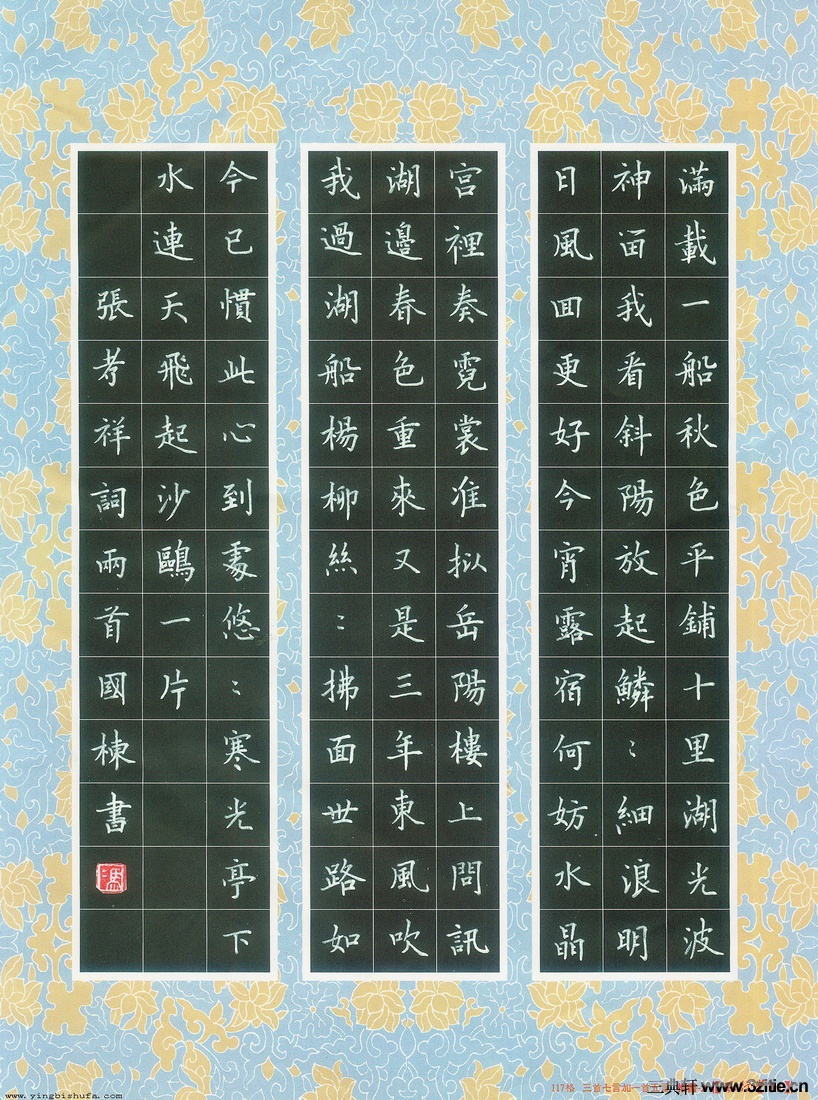 滿載一船秋色平鋪十里湖光波
神留我看斜陽放起鱗：細浪明
日風回更好今宵露宿何妨水晶
宮裡奏霓裳准拟岳陽樓上問訊
湖邊春色重來又是三年東風吹
我過湖船楊柳絲：拂面世路如
今已慣此心到處悠：寒光亭下
水連天飛起沙鷗一片
張孝祥詞兩首國棟書
www.yingbishufa.com
117格 三首七言加一首五